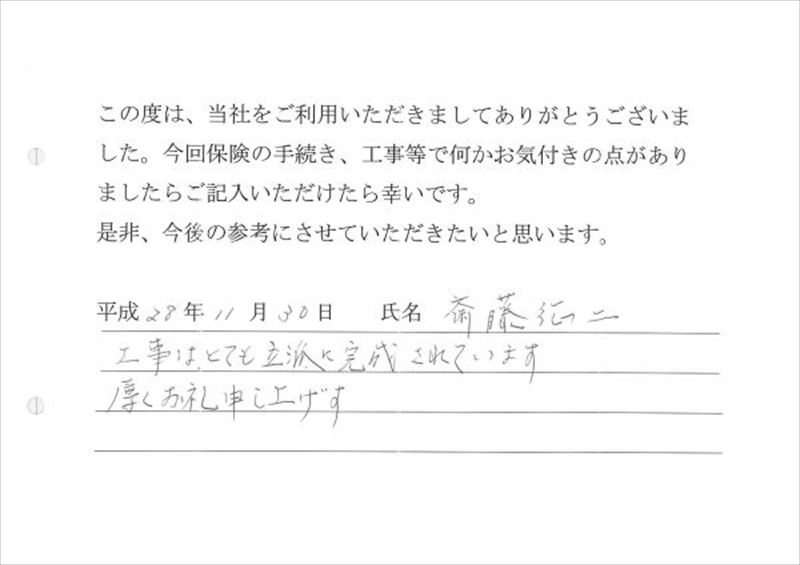 この度は、当社をご利用いただきましてありがとうございま
した。今回保険の手続き、工事等で何かお気付きの点があり
ましたらご記入いただけたら幸いです。
是非、今後の参考にさせていただきたいと思います。
平成28年11月30日 氏名 斎藤征二
工事は、とても立派に完成されています
厚くお礼申し上げす